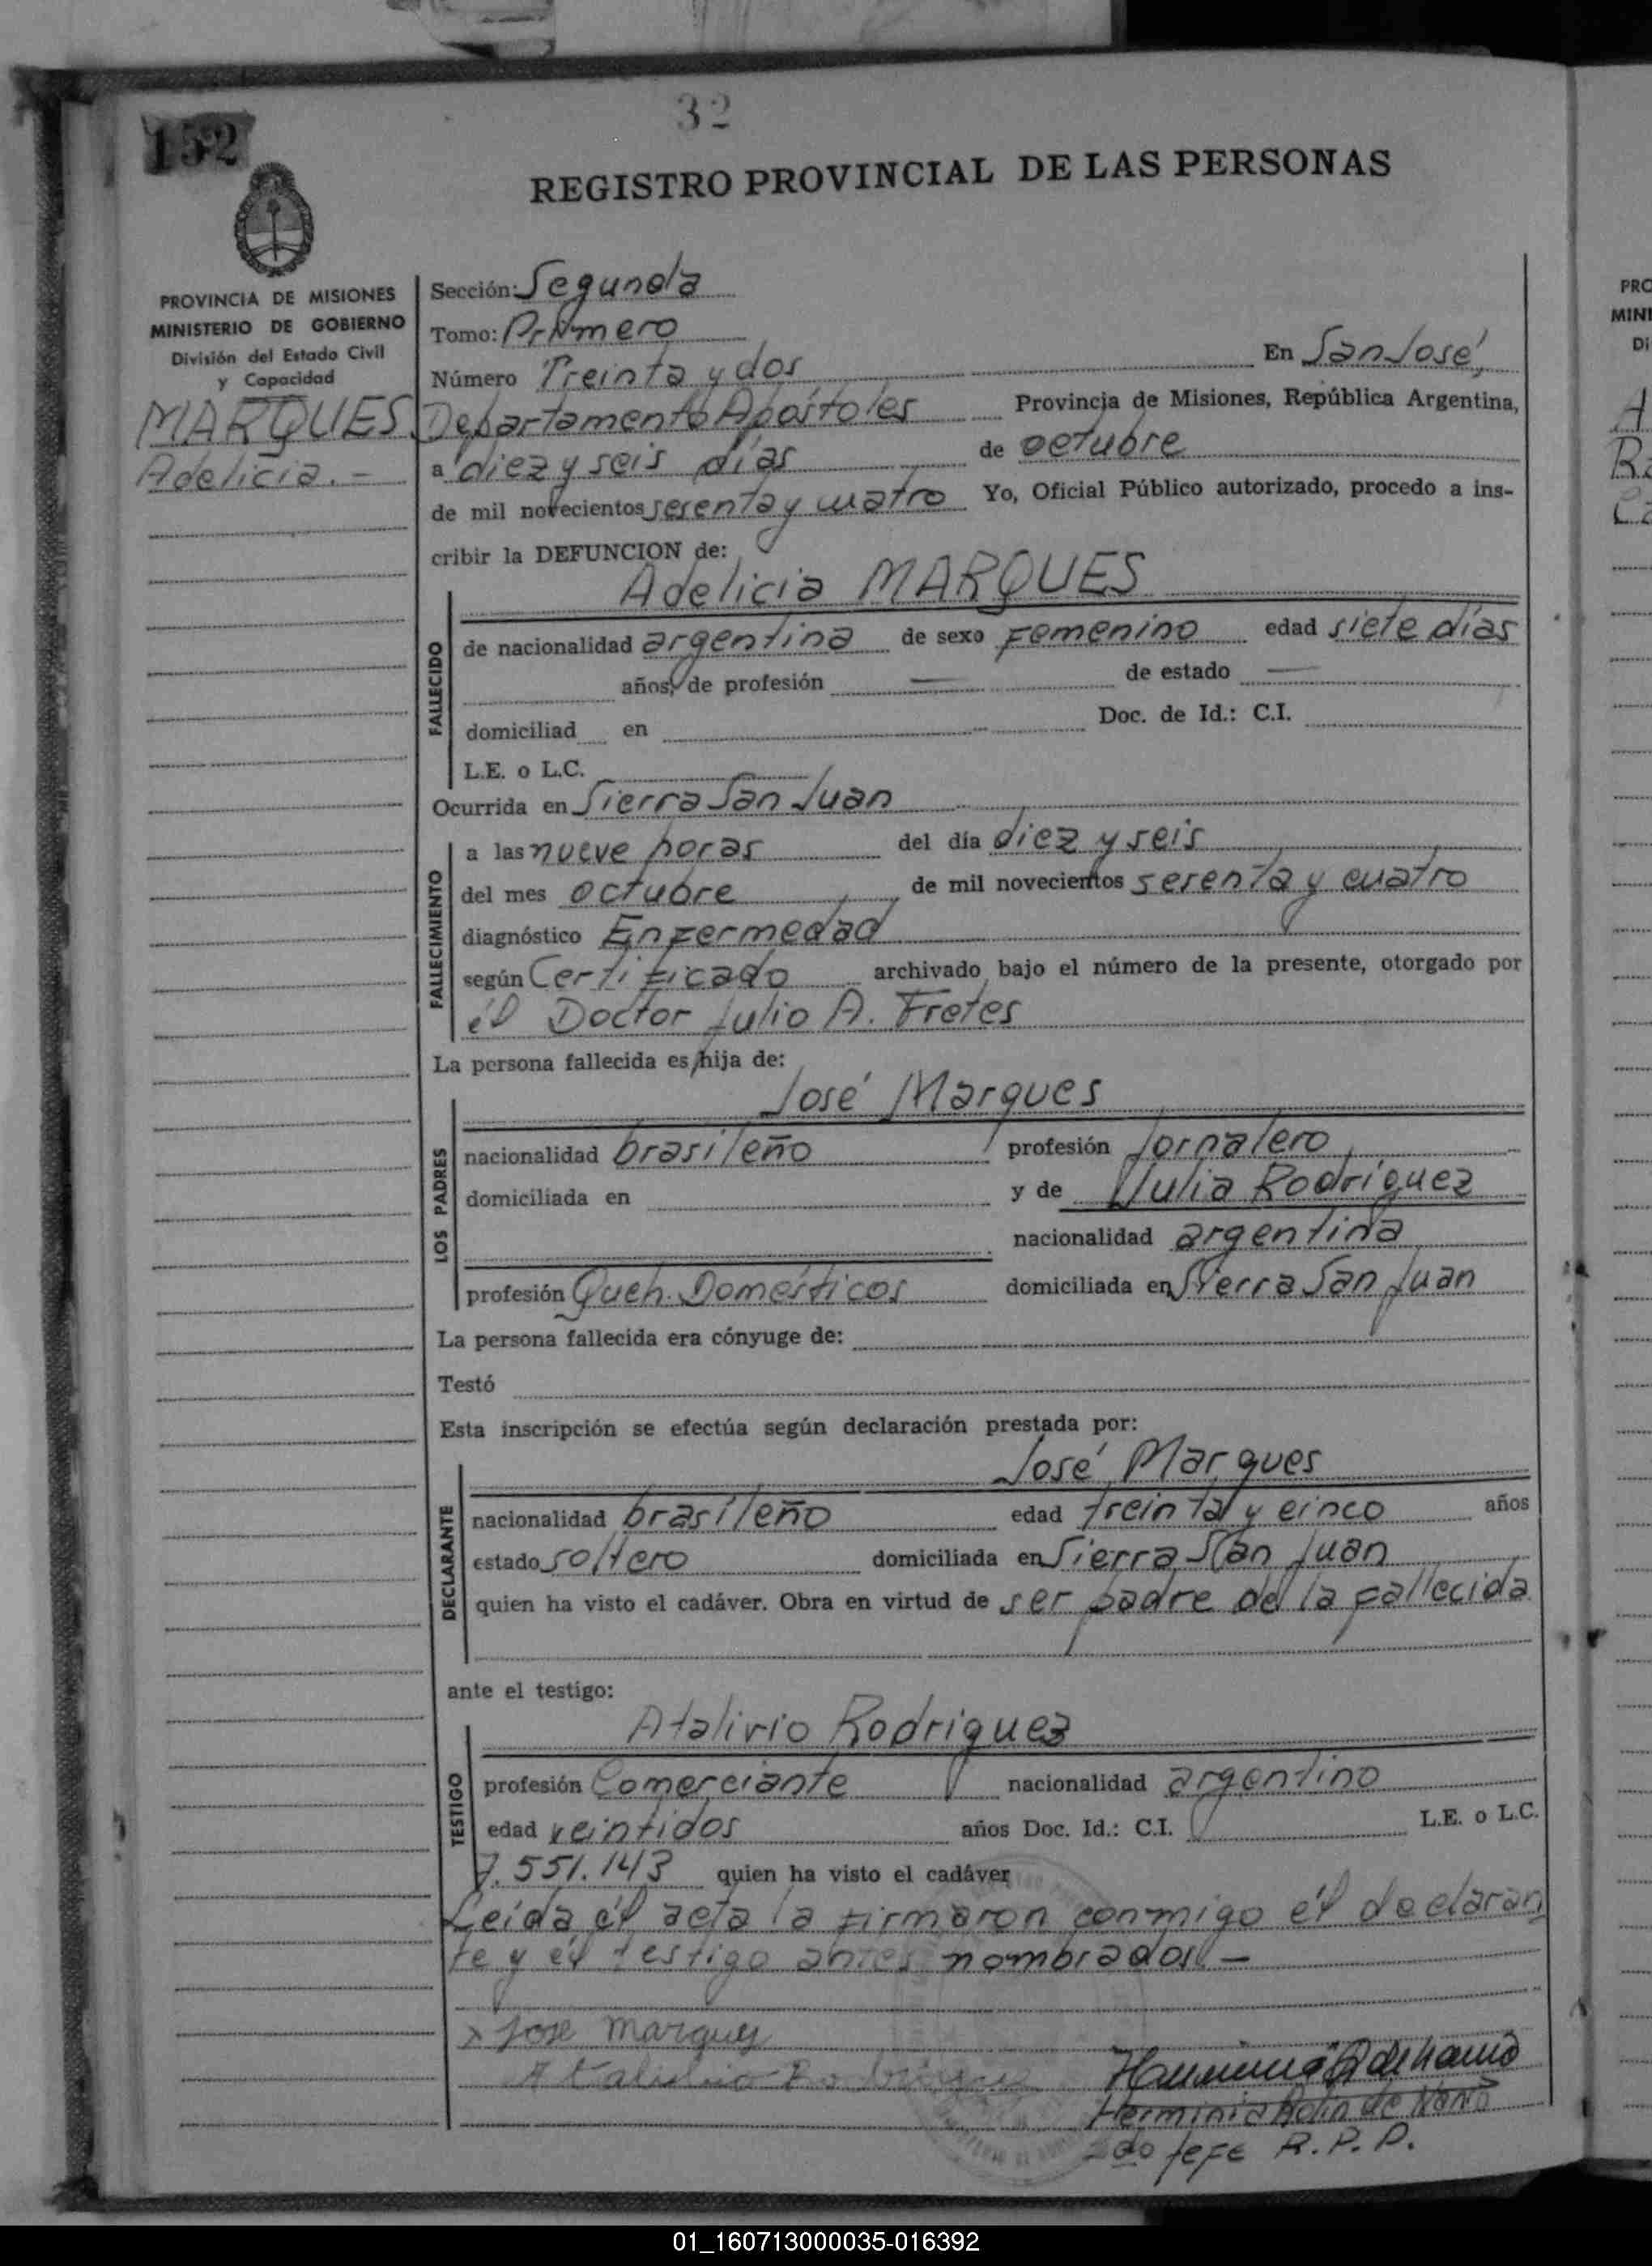 32
152
REGISTRO PROVINCIAL DE LAS PERSONAS
PROVINCIA DE MISIONES
MINISTERIO DE GOBIERNO
División del Estado Civil
y Capacidad
MARQUES
Adelicia. -
Sección: Segunda
Tomo: Primero
Número Treinta y dos En San José,
Departamento Apóstoles Provincia de Misiones, República Argentina,
a diez y seis días de octubre
de mil novecientos sesenta y cuatro Yo, Oficial Público autorizado, procedo a ins-
cribir la DEFUNCION de:
Adelicia MARQUES
FALLECIDO
de nacionalidad argentina de sexo Femenino edad siete días
años, de profesión — de estado —
domiciliad en Doc. de Id.: C.I.
L.E. o L.C.
Ocurrida en Sierra San Juan
FALLECIMIENTO
a las nueve horas del día diez y seis
del mes octubre de mil novecientos sesenta y cuatro
diagnóstico Enfermedad
según Certificado archivado bajo el número de la presente, otorgado por
él Doctor Julio A. Fretes
La persona fallecida es hija de:
José Marques
LOS PADRES
nacionalidad brasileño profesión Jornalero
domiciliada en y de Julia Rodríguez
nacionalidad argentina
profesión Queh. Domésticos domiciliada en Sierra San Juan
La persona fallecida era cónyuge de:
Testó
Esta inscripción se efectúa según declaración prestada por:
José Marques
DECLARANTE
nacionalidad brasileño edad treinta y cinco años
estado soltero domiciliada en Sierra San Juan
quien ha visto el cadáver. Obra en virtud de ser padre de la fallecida
ante el testigo:
Atalivio Rodriguez
TESTIGO
profesión Comerciante nacionalidad argentino
edad veintidos años Doc. Id.: C.I. L.E. o L.C.
7.551.143 quien ha visto el cadáver
Leída él acta la firmaron conmigo él declaran
te y él testigo antes nombrados. -
x Jose marques
Herminia
2do Jefe R.P.P.
PRO
MINI
Di
01_160713000035-016392